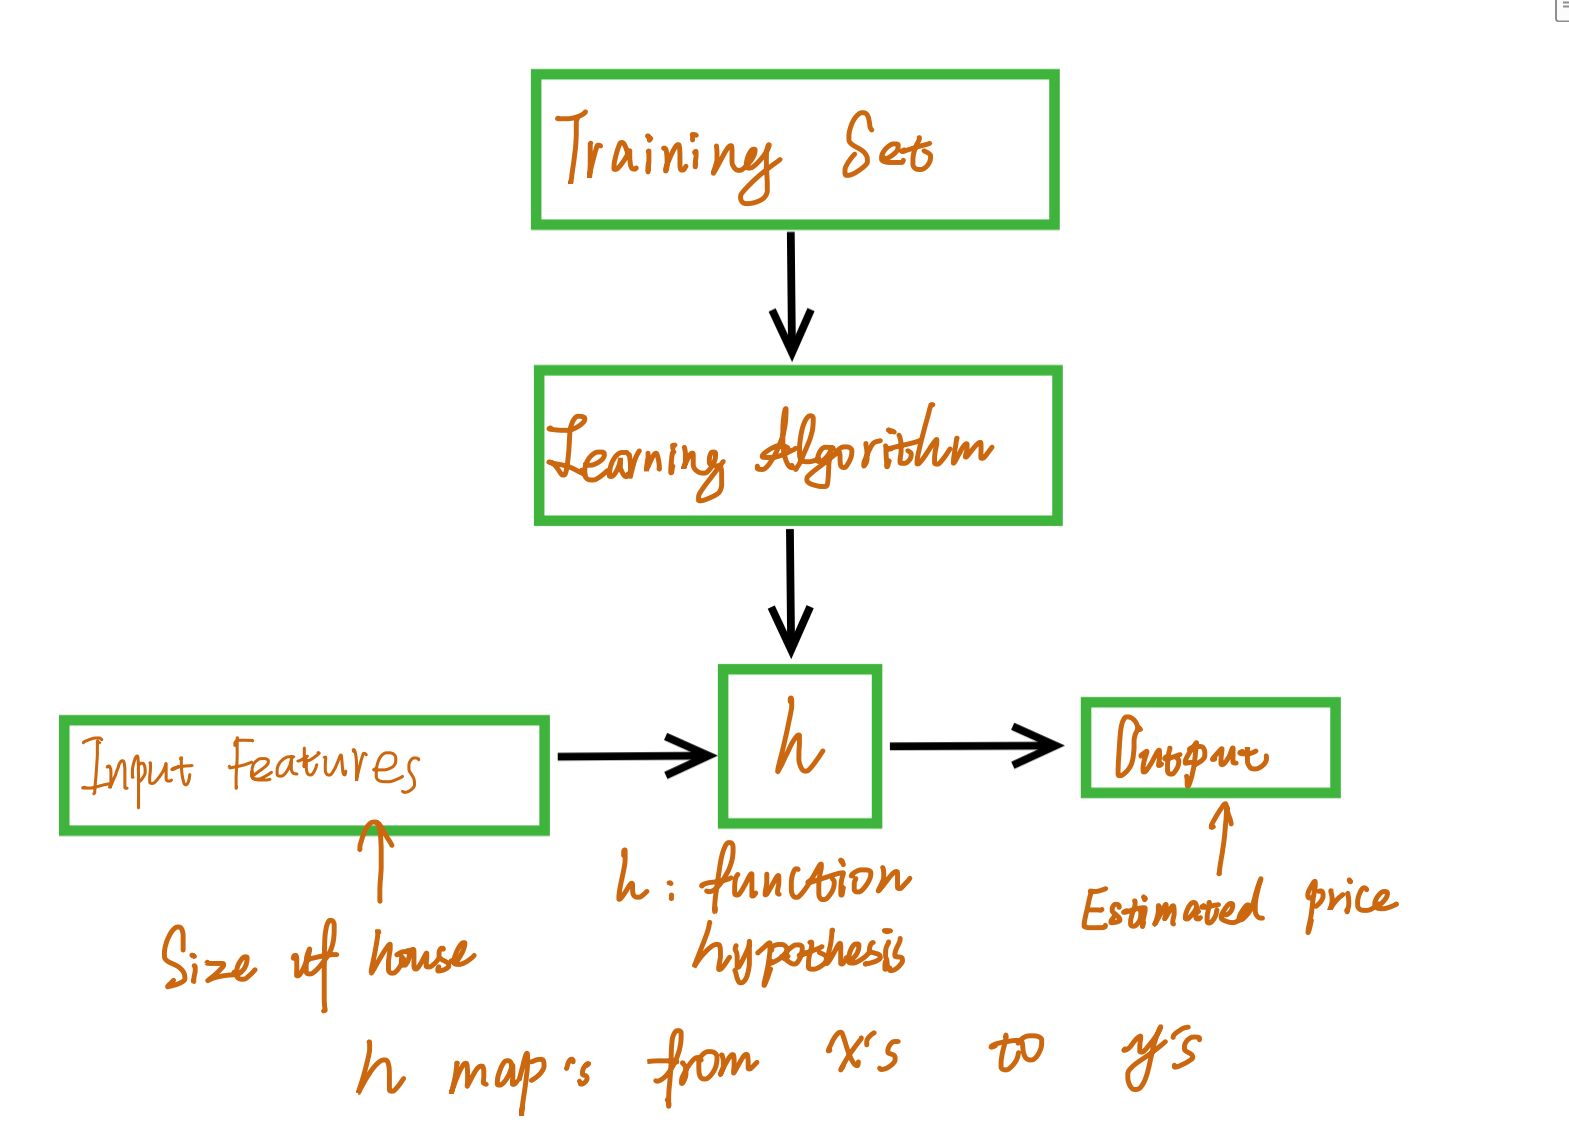 Training Set
Learning Algorithm
Input Features
h
Output
Size of house
h: function
hypothesis
Estimated price
h map's from x's to y's